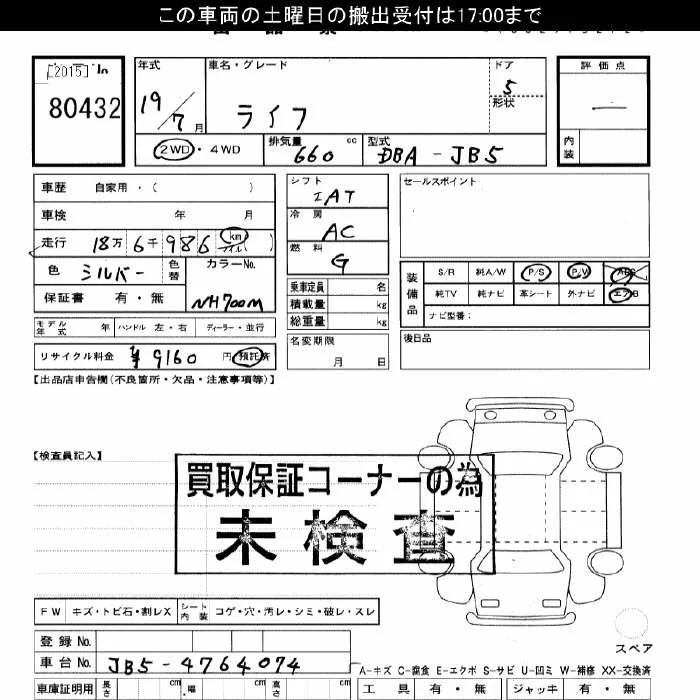 この車両の土曜日の搬出受付は17:00まで
[2015]
80432
年式 車名・グレード ドア 評価点
19/7月 ライフ 5
形状
内装
2WD・4WD 排気量 660 cc 型式 DBA-JB5
車歴 自家用・( )
車検 年 月
走行 18万6千986 km マイル
色 シルバー 色替 カラーNo. NH700M
保証書 有・無
モデル年式 年 ハンドル 左・右 ディーラー・並行
リサイクル料金 ¥9160 円 預託済
シフト IAT
冷房 AC
燃料 G
乗車定員 名
積載量 kg
総重量 kg
名変期限
月 日
セールスポイント
装備品 S/R 純A/W P/S P/W ABS
純TV 純ナビ 革シート 外ナビ エアB
ナビ型番:
後日品
【出品店申告欄(不良箇所・欠品・注意事項等)】
【検査員記入】
買取保証コーナーの為
未検査
FW キズ・トビ石・割レX シート内装 コゲ・穴・汚レ・シミ・破レ・スレ
スペア
登録No.
車台No. JB5-4764074
A-キズ C-腐食 E-エクボ S-サビ U-凹ミ W-補修 XX-交換済
車庫証明用 長さ cm 幅 cm 高さ cm
工具 有・無 ジャッキ 有・無